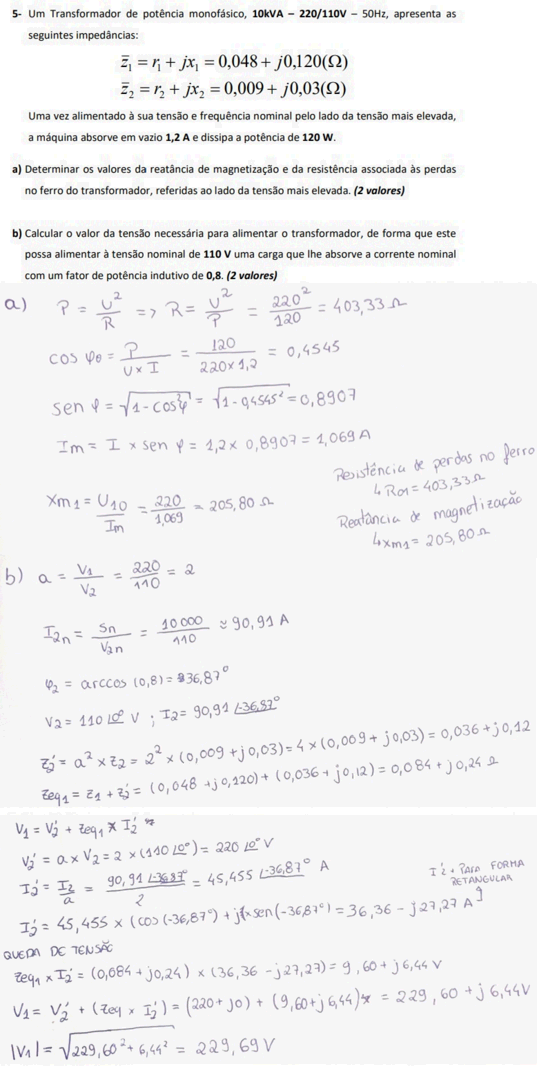 5- Um Transformador de potência monofásico, 10kVA – 220/110V – 50Hz, apresenta as
seguintes impedâncias:
z̅₁ = r₁ + jx₁ = 0,048 + j0,120(Ω)
z̅₂ = r₂ + jx₂ = 0,009 + j0,03(Ω)
Uma vez alimentado à sua tensão e frequência nominal pelo lado da tensão mais elevada,
a máquina absorve em vazio 1,2 A e dissipa a potência de 120 W.
a) Determinar os valores da reatância de magnetização e da resistência associada às perdas
no ferro do transformador, referidas ao lado da tensão mais elevada. (2 valores)
b) Calcular o valor da tensão necessária para alimentar o transformador, de forma que este
possa alimentar à tensão nominal de 110 V uma carga que lhe absorve a corrente nominal
com um fator de potência indutivo de 0,8. (2 valores)
a) P = U²/R => R = U²/P = 220²/120 = 403,33 Ω
cos φ₀ = P/(U x I) = 120/(220x1,2) = 0,4545
sen φ = √(1 - cos²φ) = √(1 - 0,4545²) = 0,8907
Im = I x sen φ = 1,2 x 0,8907 = 1,069 A
Xm₁ = U₁₀/Im = 220/1,069 = 205,80 Ω
Resistência de perdas no ferro
↳ R₀₁ = 403,33 Ω
Reatância de magnetização
↳ xm₁ = 205,80 Ω
b) a = V₁/V₂ = 220/110 = 2
I₂n = Sn/V₂n = 10000/110 ≈ 90,91 A
φ₂ = arccos (0,8) = 36,87°
V₂ = 110 ∠0° V ; I₂ = 90,91 ∠-36,87°
Z₂' = a² x Z₂ = 2² x (0,009 + j0,03) = 4 x (0,009 + j0,03) = 0,036 + j0,12
Zeq₁ = Z₁ + Z₂' = (0,048 + j0,120) + (0,036 + j0,12) = 0,084 + j0,24 Ω
V₁ = V₂' + Zeq₁ x I₂'
V₂' = a x V₂ = 2 x (110 ∠0°) = 220 ∠0° V
I₂' = I₂/a = 90,91 ∠-36,87°/2 = 45,455 ∠-36,87° A
I₂' → PARA FORMA
RETANGULAR
I₂' = 45,455 x (cos (-36,87°) + j x sen (-36,87°) = 36,36 - j27,27 A
QUEDA DE TENSÃO
Zeq₁ x I₂' = (0,084 + j0,24) x (36,36 - j27,27) = 9,60 + j6,44 V
V₁ = V₂' + (Zeq x I₂') = (220 + j0) + (9,60 + j6,44) = 229,60 + j6,44V
|V₁| = √(229,60² + 6,44²) = 229,69 V